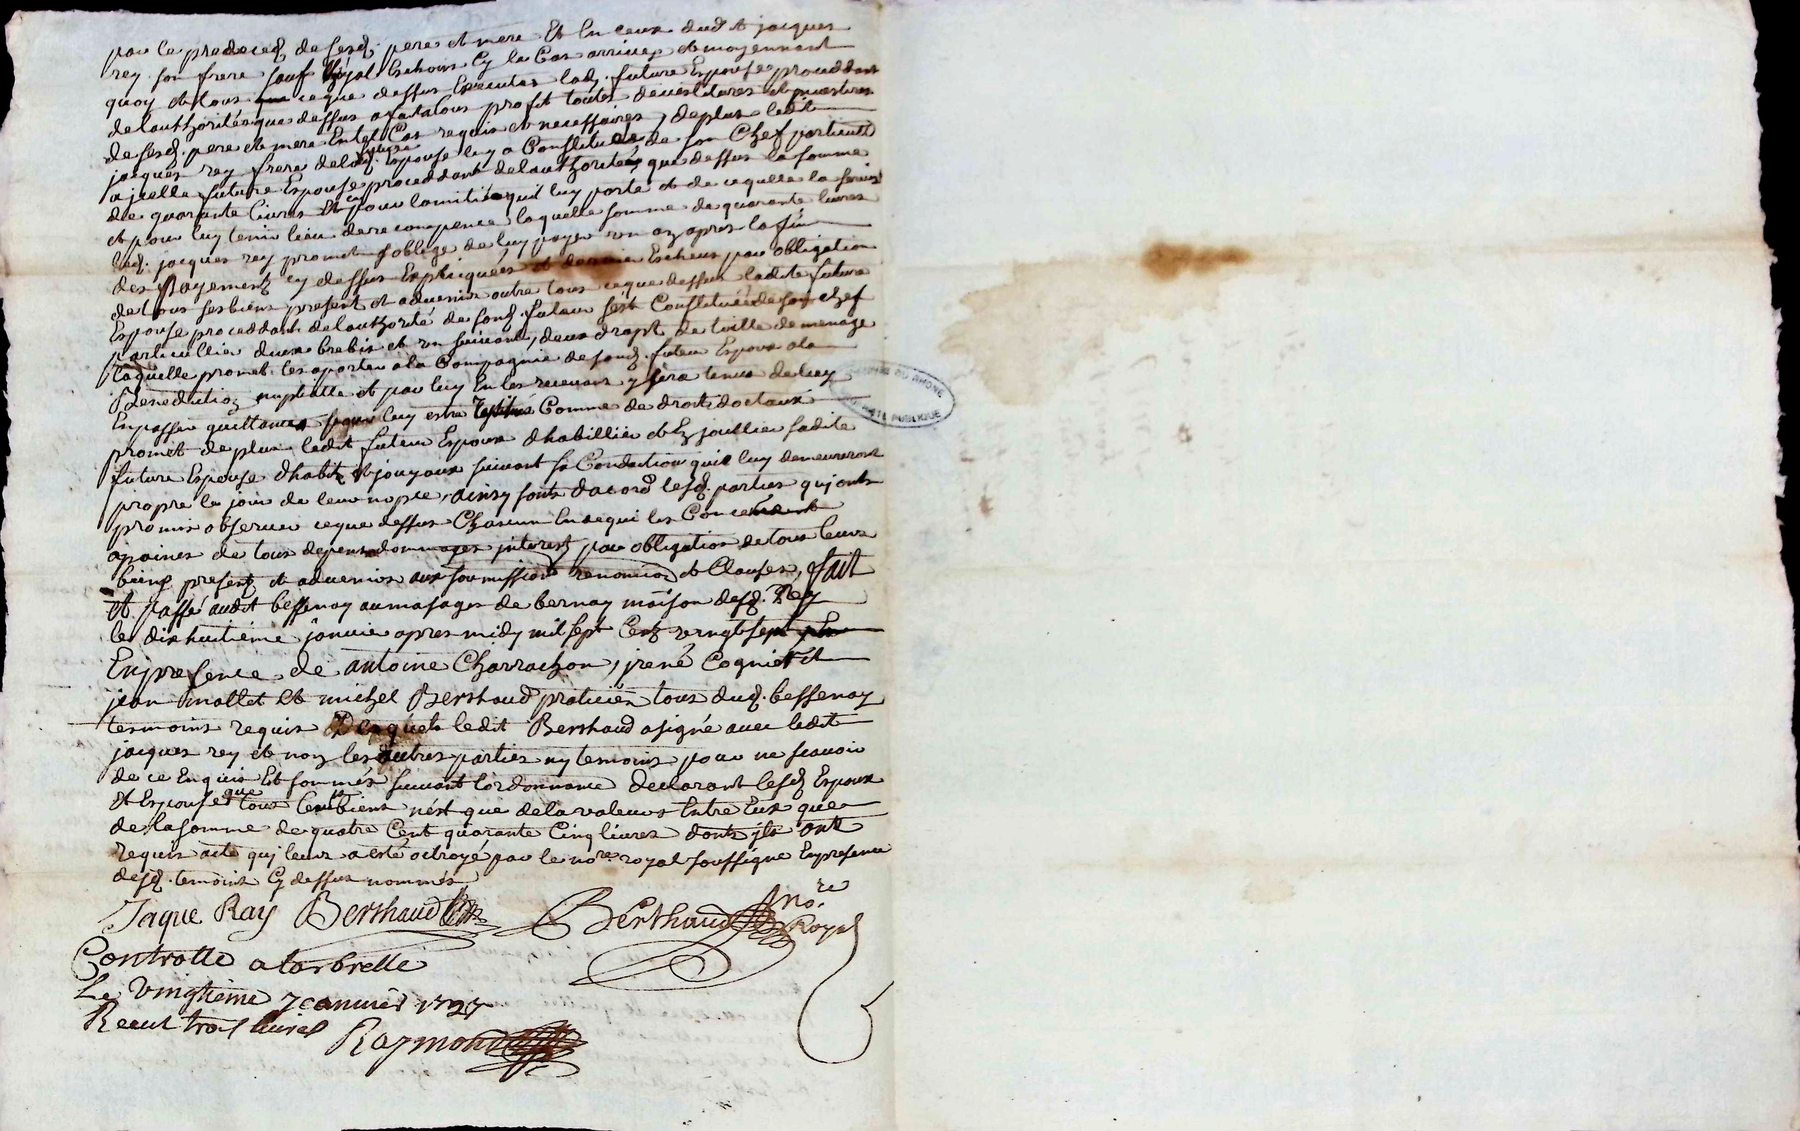 par le predeced. de sesd. pere et mere Et En ceux dud. et jacques
rey son frere sauf Esgal Eschoir Cy le Cas arrivez et moyennant
quoy et tous ceque dessus Executer lad. future Espouse proceddant
delauthorité que dessus a fait alous profit toutes
de sesd. pere et mere En tel Cas requis et necessaires, deplus ledit
jacques rey frere delad. future Espouse luy a Constitué de son Chef particull
ajcelle future Espouse proceddant delauthorité que dessus la somme
de quarante livres Et ce pour lamitié quil luy porte et de cequelle la servi
et pour luy tenir lieu derecompence laquelle somme de quarante livres
led. jacques rey promet soblige de luy payer un an apres la fin
des payements cy dessus Expliquées et dernier Escheus par obligation
detous ses biens present et advenir outre tous ceque dessus ladite future
Espouse proceddant delauthorité de sond. futeur sest Constituée de son chef
particullier deux brebis et un suivant, deux drapt de toille demenage
laquelle promet les aporter ala Compagnie de sond. futeur Espoux ala
Benediction nuptialle et par luy En les recevant y sera tenus de luy
Enpasser quittance pour luy estre restitués Comme de droit doctaux
promet deplus ledit futeur Espoux dhabillier et Enjoullier sadite
future Espouse dhabits et jouyaux suivant sa Condiction quil luy demeureront
propre le jour de leur nopce, ainsy sont dacord lesd. parties quj ont
promis observer ceque dessus Chascun Endequi les Concernent
apaines de tous depens dommages jnterest par obligation de tous leurs
biens present et advenir aux soumissions renoncion et Clauses, fait
et passé audit bessenay aumasages de bernay maison desd. Rey
le dixhuitiéme janvier apres midy mil sept Cent vengtsept
Enpresence de antoine Charrachon, jrené Cogniet et
jean mollet et michel Berthaud praticien tous dud. bessenay
temoins requis ledit Berthaud asigné avec ledit
jacques rey et non les autres parties ny temoins pour ne scavoir
de ce Enquis Et sommés suivant lordonnance declarant lesd. Espoux
Et Espouse que tous leurs biens nest que delavaleurs Entre Eux que
de la somme de quatre Cent quarante Cinq livres donts jls ont
requis acte quj leurs a esté octroyé par le nore. royal soussigne Enpresence
desd. temoins Cy dessus nommés
Jaque Ray Berthaud Berthaud nore. Royal
Controllé a larbrelle
Le vingtieme Jeanvier 1727
Receut trois livres
Raymond
RHONE
PUBLIQUE